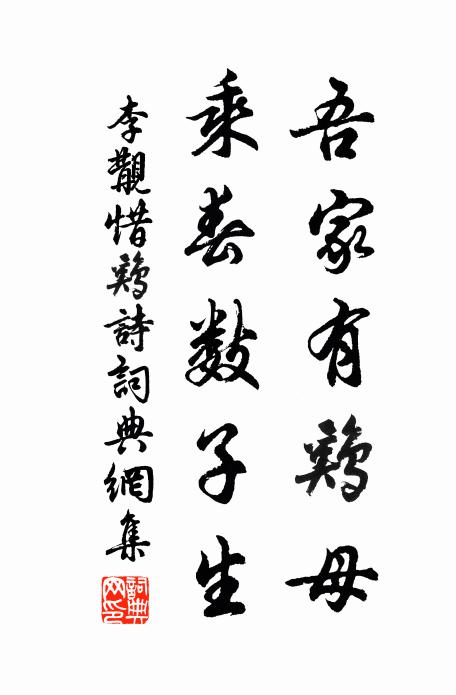 吾家有鷄母
乘春數子生
李覯惜鷄詩詞典網集
詞典網印